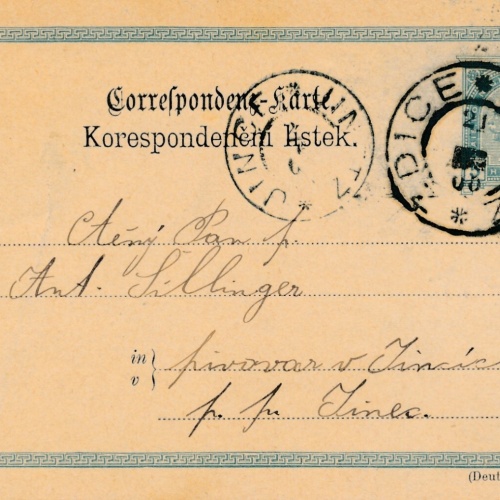 Correspondenz-Karte.
Korespondenční lístek.
JINCE JINETZ
ZDICE
21
Ctěný Pan p.
Ant. Sillinger
in
v
pivovar v Jincíc
p. p. Jinec.
(Deut